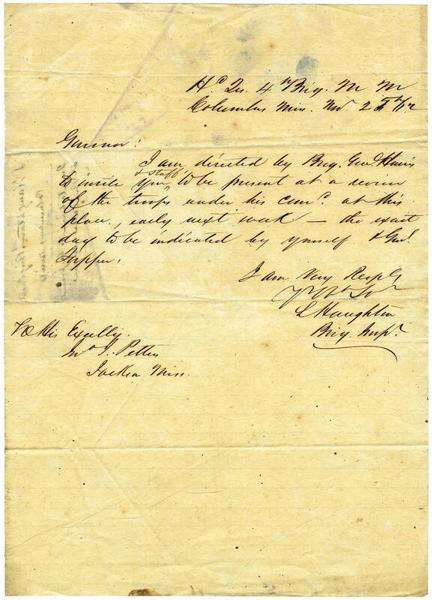 Hd Qrs 4th Brig. M M
Columbus Miss. Nov 25th /62
Governor:
I am directed by Brig. Genl Harris
to invite you & staff to be present at a review
of the troops under his comd. at this
place, early next week — the exact
day to be indicated by yourself & Genl
Tupper.
I am Very Resply
Yr Obt Svt
L Haughton
Brig. Insp.
To His Excelly.
Jno J. Pettus
Jackson Miss.